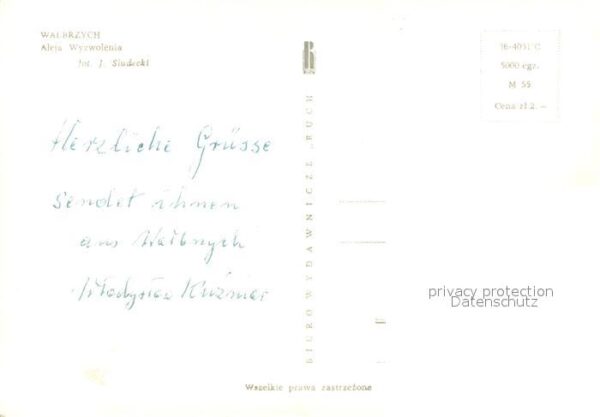 WAŁBRZYCH
Aleja Wyzwolenia
fot. J. Siudecki
Herzliche Grüsse
sendet ihnen
aus Wałbrzych
Władysław Kuźniar
BIURO WYDAWNICZE „RUCH”
36-4051 C
5000 egz.
M 55
Cena zł 2.–
privacy protection
Datenschutz
Wszelkie prawa zastrzeżone